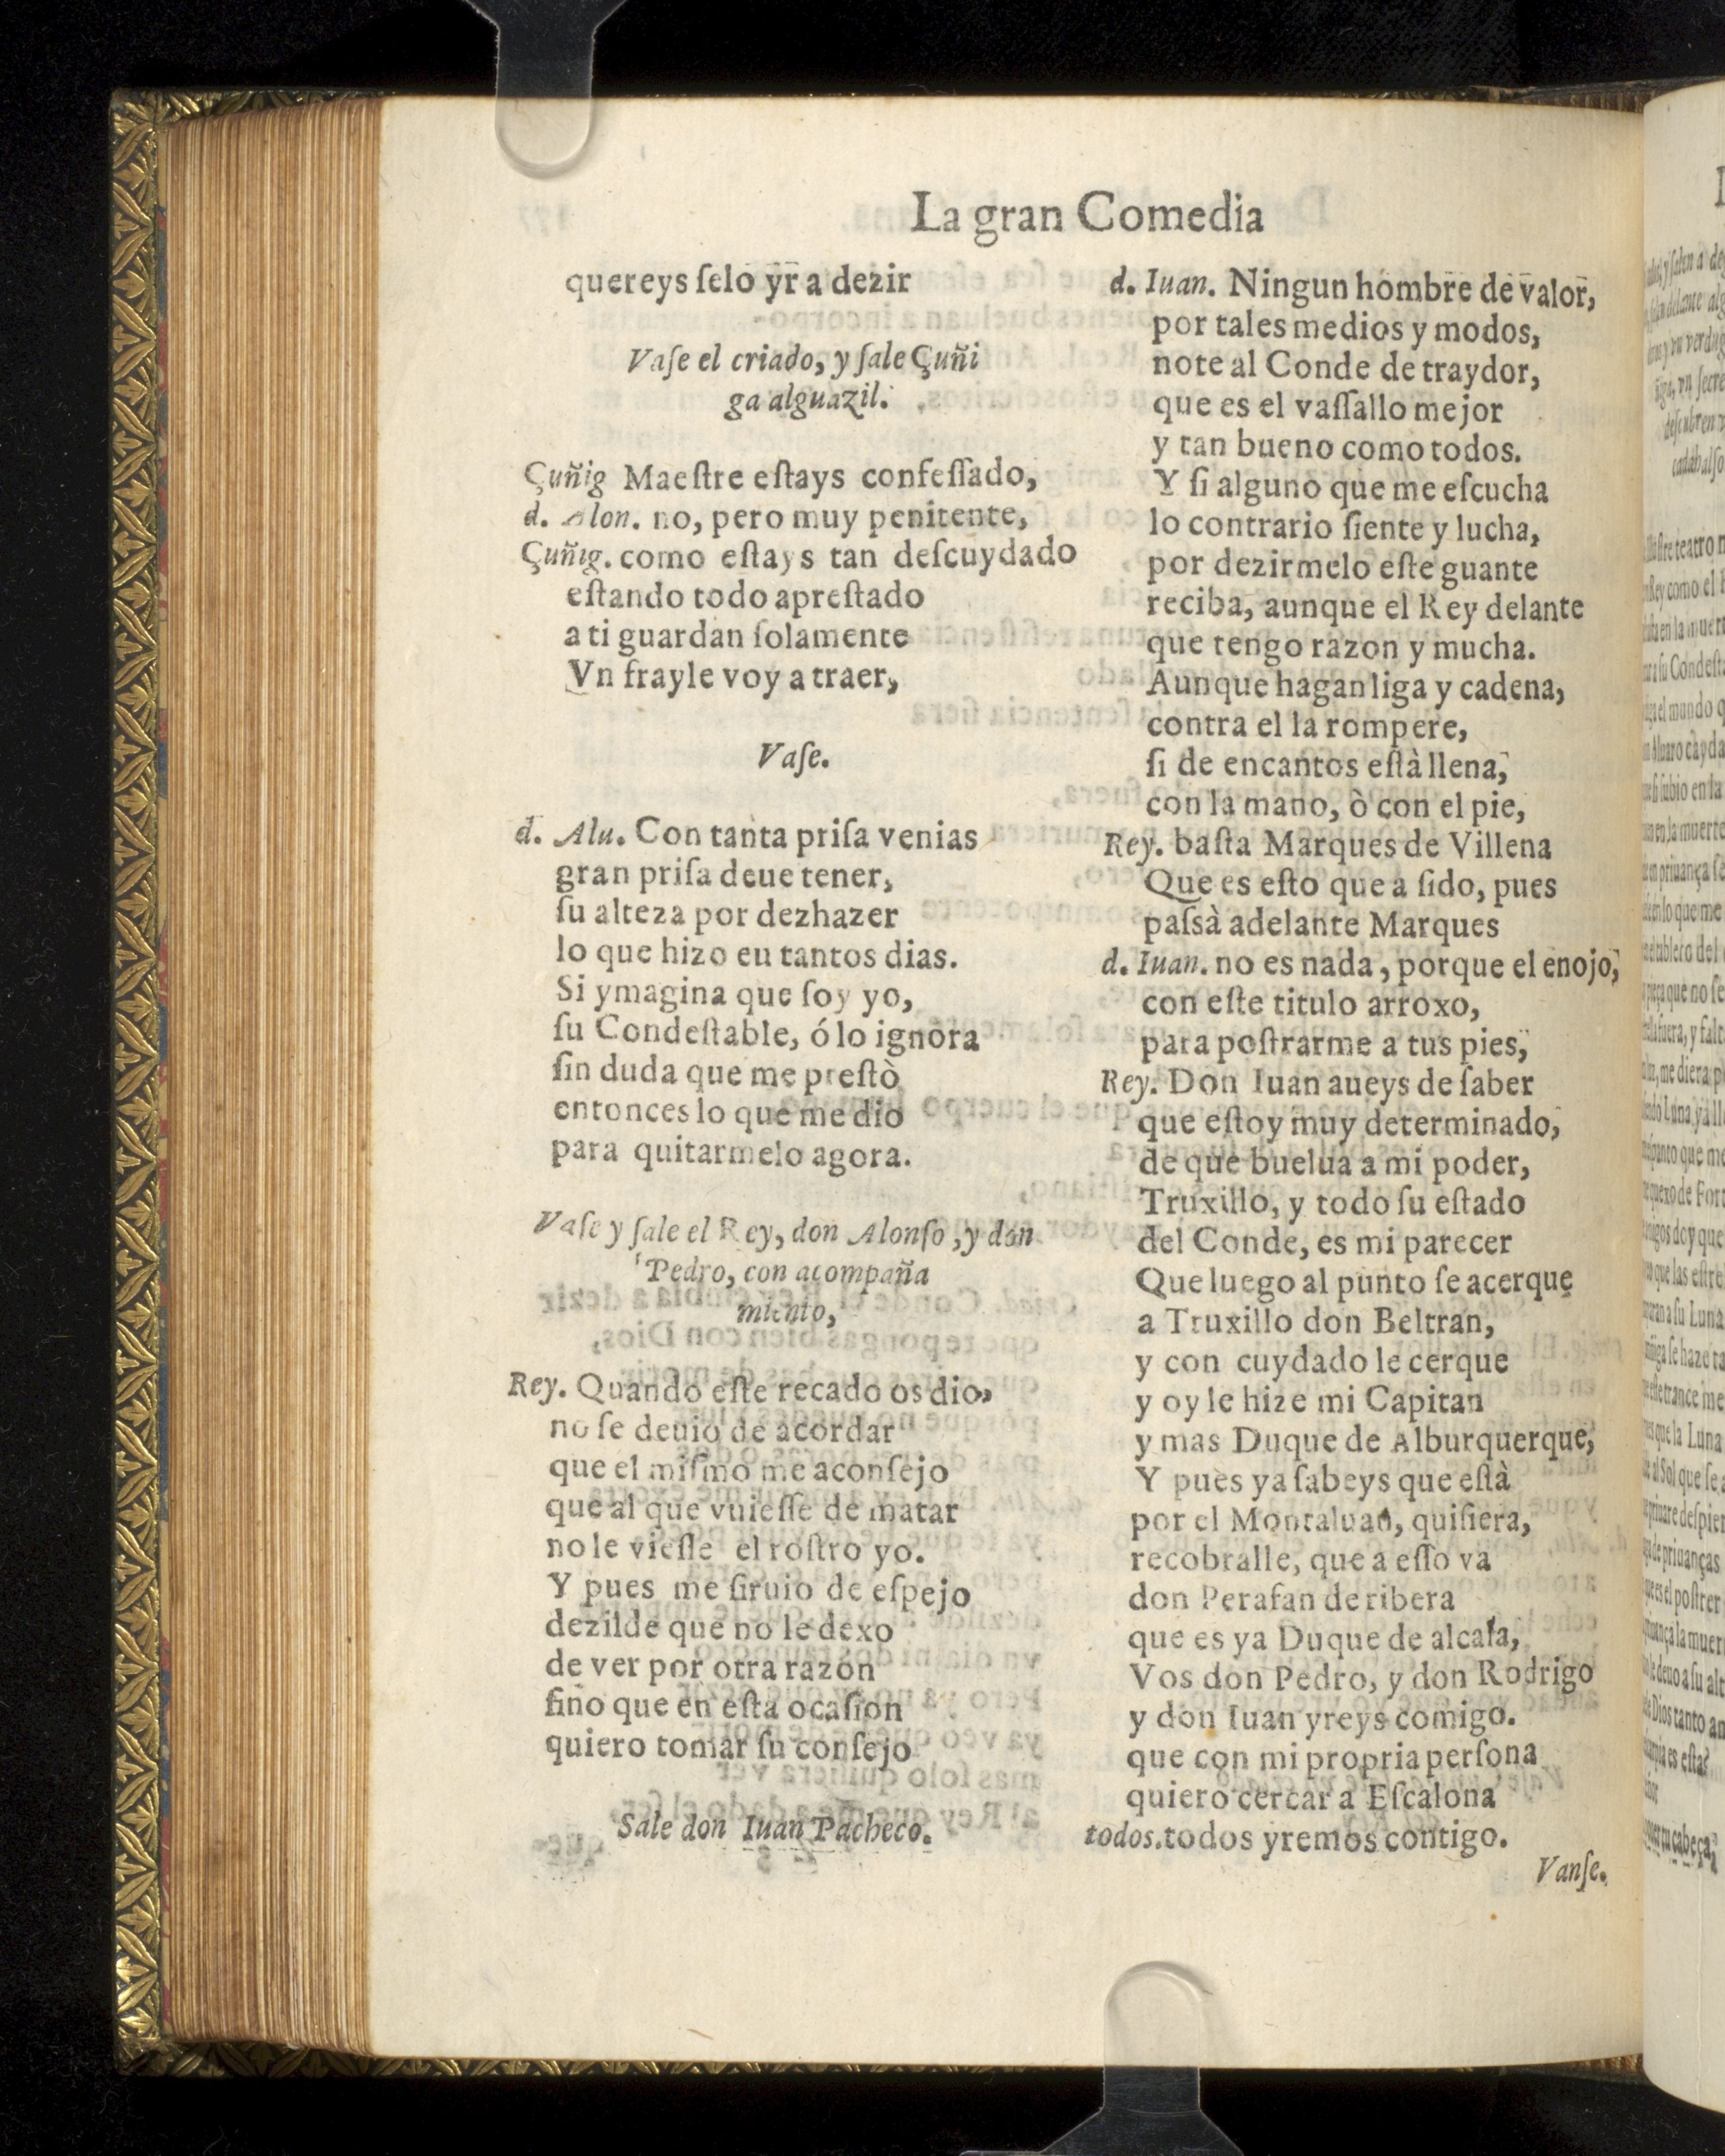 La gran Comedia
quereys ſelo yr a dezir
Vaſe el criado, y ſale Çuñi
ga alguazil.
Çuñig Maeſtre eſtays confeſſado,
d. Alon. no, pero muy penitente,
Çuñig. como eſtays tan deſcuydado
eſtando todo apreſtado
a ti guardan ſolamente
Vn frayle voy a traer,
Vaſe.
d. Alu. Con tanta priſa venias
gran priſa deue tener,
ſu alteza por dezhazer
lo que hizo eu tantos dias.
Si ymagina que ſoy yo,
ſu Condeſtable, ó lo ignora
ſin duda que me preſtò
entonces lo que me dio
para quitarmelo agora.
Vaſe y ſale el Rey, don Alonſo, y don
Pedro, con acompaña
miento,
Rey. Quando eſte recado os dio,
no ſe deuio de acordar
que el miſmo me aconſejo
que al que vuieſſe de matar
no le vieſſe el roſtro yo.
Y pues me ſiruio de eſpejo
dezilde que no le dexo
de ver por otra razon
ſino que en eſta ocaſion
quiero tomar ſu conſejo
Sale don Iuan Pacheco.
d. Iuan. Ningun hombre de valor,
por tales medios y modos,
note al Conde de traydor,
que es el vaſſallo mejor
y tan bueno como todos.
Y ſi alguno que me eſcucha
lo contrario ſiente y lucha,
por dezirmelo eſte guante
reciba, aunque el Rey delante
que tengo razon y mucha.
Aunque hagan liga y cadena,
contra el la rompere,
ſi de encantos eſtà llena,
con la mano, ò con el pie,
Rey. baſta Marques de Villena
Que es eſto que a ſido, pues
paſsà adelante Marques
d. Iuan. no es nada, porque el enojo,
con eſte titulo arroxo,
para poſtrarme a tus pies,
Rey. Don Iuan aueys de ſaber
que eſtoy muy determinado,
de que buelua a mi poder,
Truxillo, y todo ſu eſtado
del Conde, es mi parecer
Que luego al punto ſe acerque
a Truxillo don Beltran,
y con cuydado le cerque
y oy le hize mi Capitan
y mas Duque de Alburquerque,
Y pues ya ſabeys que eſtà
por el Montaluan, quiſiera,
recobralle, que a eſſo va
don Perafan de ribera
que es ya Duque de alcala,
Vos don Pedro, y don Rodrigo
y don Iuan yreys comigo.
que con mi propria perſona
quiero cercar a Eſcalona
todos. todos yremos contigo.
Vanſe.